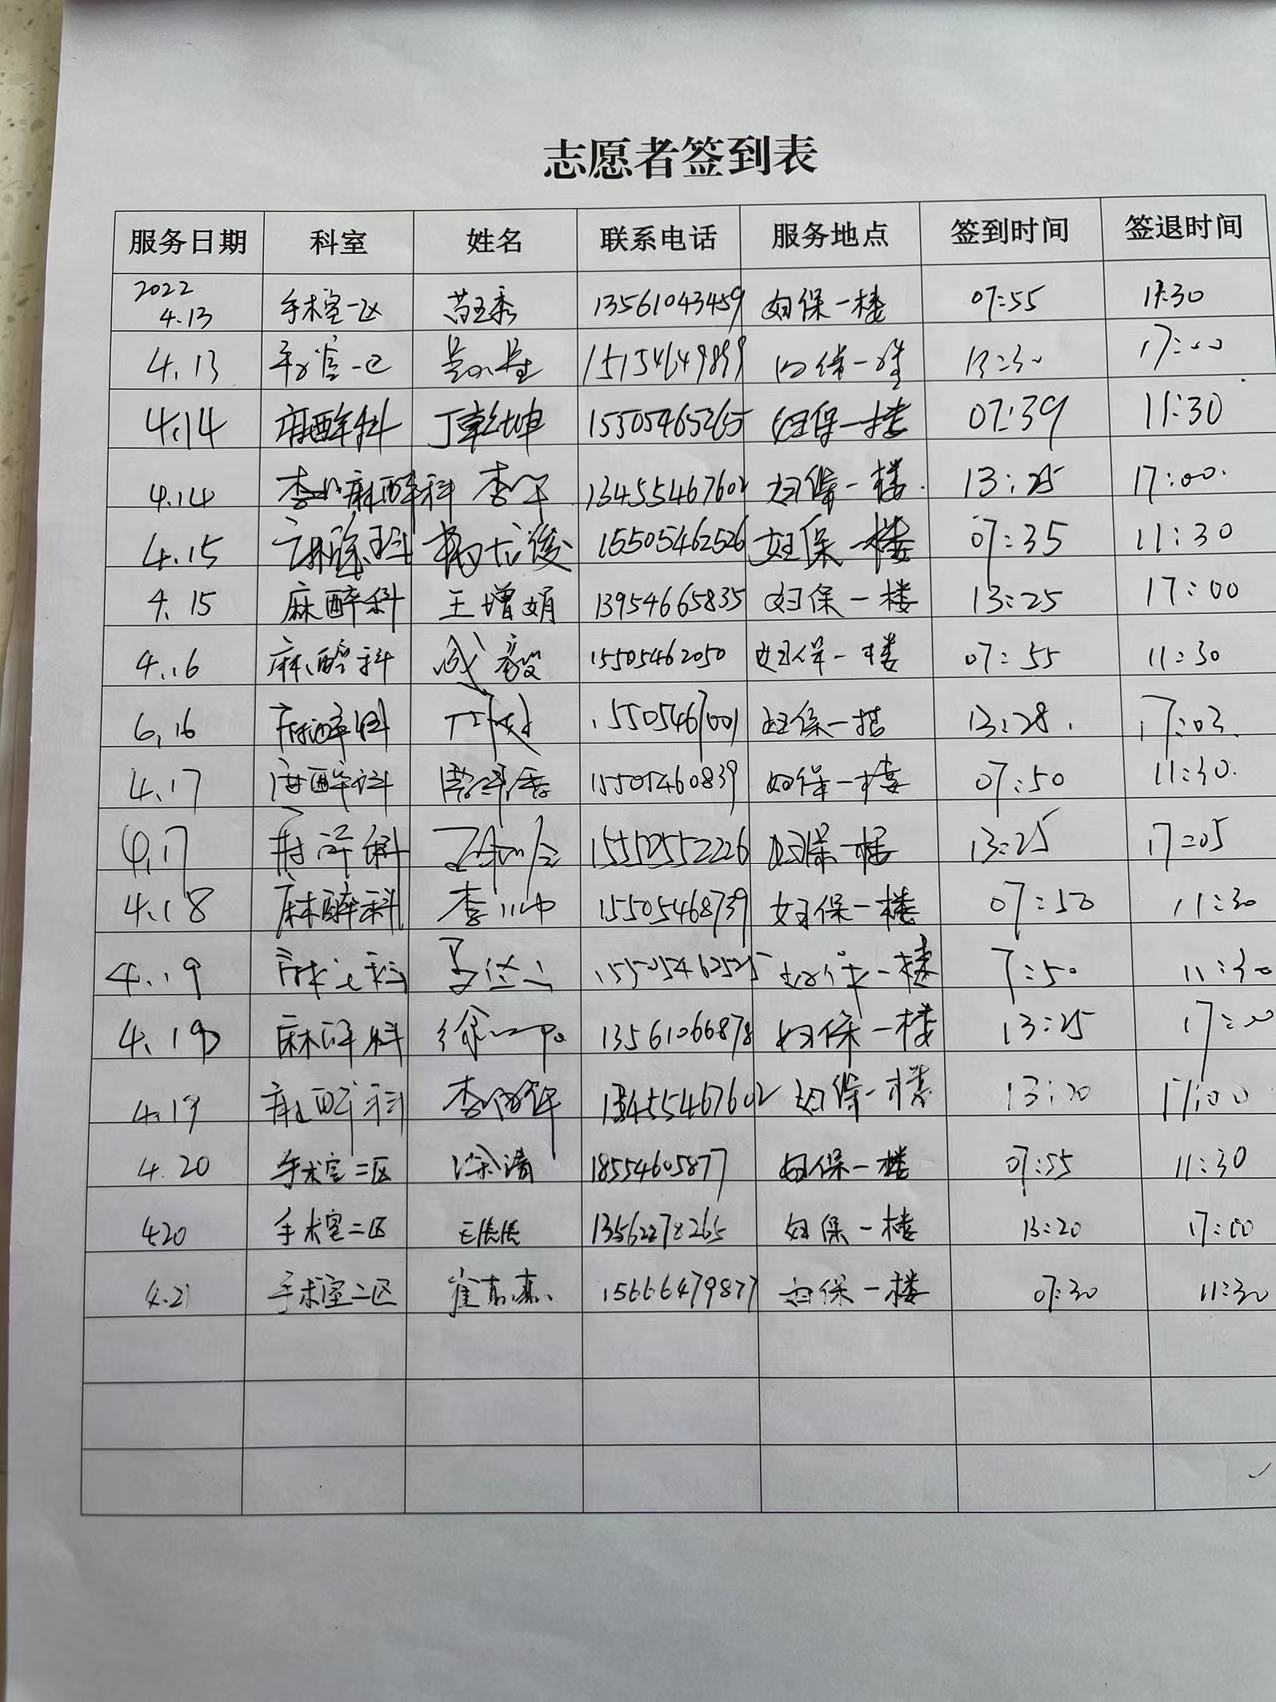 志愿者签到表
服务日期 科室 姓名 联系电话 服务地点 签到时间 签退时间
2022
4.13 手术室一区 13561043459 妇保一楼 07:55 11:30
4.13 手术室一区 15154649899 妇保一楼 13:30 17:00
4.14 麻醉科 丁乾坤 15505465265 妇保一楼 07:39 11:30
4.14 麻醉科 李 13455467602 妇保一楼 13:25 17:00
4.15 麻醉科 15505462526 妇保一楼 07:35 11:30
4.15 麻醉科 王增娟 13954665835 妇保一楼 13:25 17:00
4.16 麻醉科 成毅 15505462050 妇保一楼 07:55 11:30
6.16 麻醉科 15505467001 妇保一楼 13:28 17:03
4.17 麻醉科 15505460839 妇保一楼 07:50 11:30
4.17 麻醉科 15550552226 妇保一楼 13:25 17:05
4.18 麻醉科 李帅 15505468739 妇保一楼 07:50 11:30
4.19 麻醉科 15505462525 妇保一楼 7:50 11:30
4.19 麻醉科 徐 13561066878 妇保一楼 13:25 17:00
4.19 麻醉科 李 13455467602 妇保一楼 13:20 17:00
4.20 手术室二区 徐清 18554605877 妇保一楼 07:55 11:30
420 手术室二区 13562278265 妇保一楼 13:20 17:00
4.21 手术室二区 崔 15666479877 妇保一楼 07:30 11:30